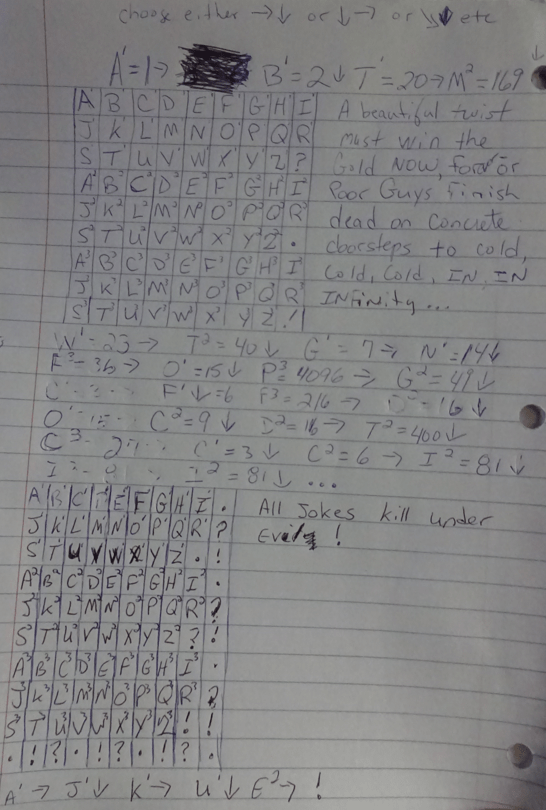 choose either →↓ or ↓→ or ↘↓ etc
A¹=1→ B¹=2↓ T¹=20→M²=169
A¹ B¹ C¹ D¹ E¹ F¹ G¹ H¹ I¹
J¹ K¹ L¹ M¹ N¹ O¹ P¹ Q¹ R¹
S¹ T¹ U¹ V¹ W¹ X¹ Y¹ Z¹ ?
A² B² C² D² E² F² G² H² I²
J² K² L² M² N² O² P² Q² R²
S² T² U² V² W² X² Y² Z² .
A³ B³ C³ D³ E³ F³ G³ H³ I³
J³ K³ L³ M³ N³ O³ P³ Q³ R³
S³ T³ U³ V³ W³ X³ Y³ Z³ !
A beautiful twist
must win the
Gold NOW, for or
Poor Guys Finish
dead on Concrete
doorsteps to cold,
Cold, Cold, IN, IN
INfinity...
W¹=23→ T²=40↓ G¹=7→ N¹=14↓
F²=36→ O¹=15↓ P³=4096→ G²=49↓
F¹↓=6 F³=216→ D²=16↓
O¹ 15 C²=9↓ D²=16→ T²=400↓
C³ 27 C¹=3↓ C²=6→ I²=81↓
I²=81↓ ...
A¹ B¹ C¹ D¹ E¹ F¹ G¹ H¹ I¹ .
J¹ K¹ L¹ M¹ N¹ O¹ P¹ Q¹ R¹ ?
S¹ T¹ U¹ V¹ W¹ X¹ Y¹ Z¹ . !
A² B² C² D² E² F² G² H² I² .
J² K² L² M² N² O² P² Q² R² ?
S² T² U² V² W² X² Y² Z² ? !
A³ B³ C³ D³ E³ F³ G³ H³ I³ .
J³ K³ L³ M³ N³ O³ P³ Q³ R³ ?
S³ T³ U³ V³ W³ X³ Y³ Z³ ! !
. ! ? . ! ? . ! ? .
All Jokes kill under
Evil !
A¹ → J¹↓ K¹→ U¹↓ E²→ !